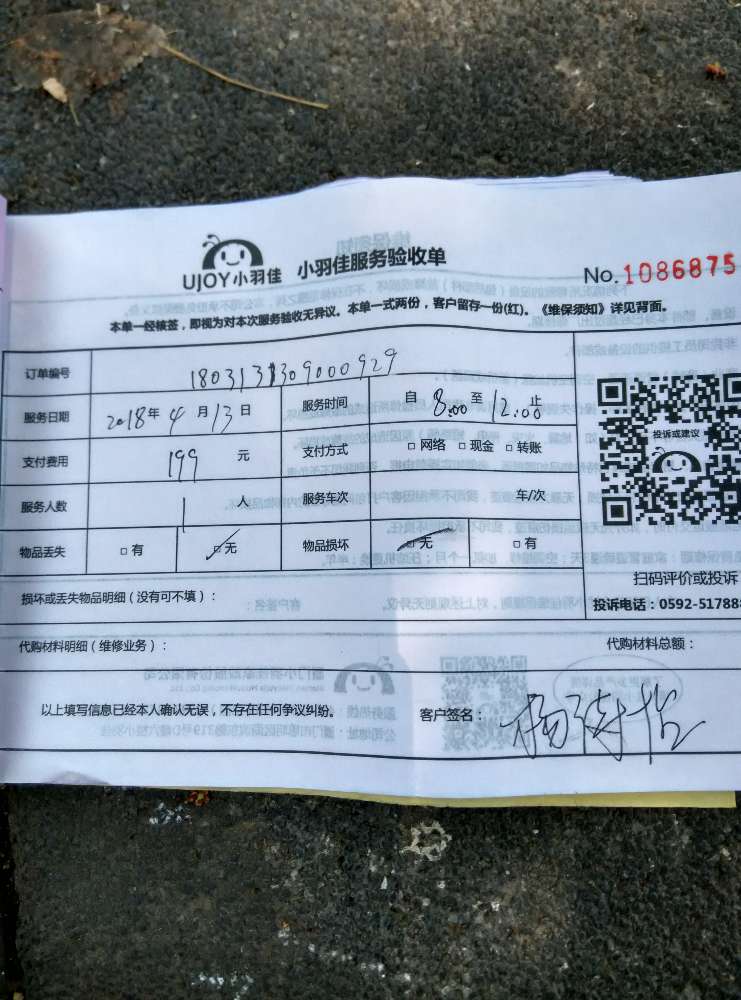 UJOY小羽佳 小羽佳服务验收单
No.1086875
本单一经核签，即视为对本次服务验收无异议。本单一式两份，客户留存一份(红)。《维保须知》详见背面。
订单编号 180313109000929
服务日期 2018年4月13日 服务时间 自8:00至12:00止
支付费用 199元 支付方式 □网络 □现金 □转账
服务人数 1人 服务车次 车/次
物品丢失 □有 □无 物品损坏 □无 □有
投诉或建议
扫码评价或投诉
损坏或丢失物品明细（没有可不填）：
投诉电话：0592-517888
代购材料明细（维修业务）： 代购材料总额：
以上填写信息已经本人确认无误，不存在任何争议纠纷。 客户签名：